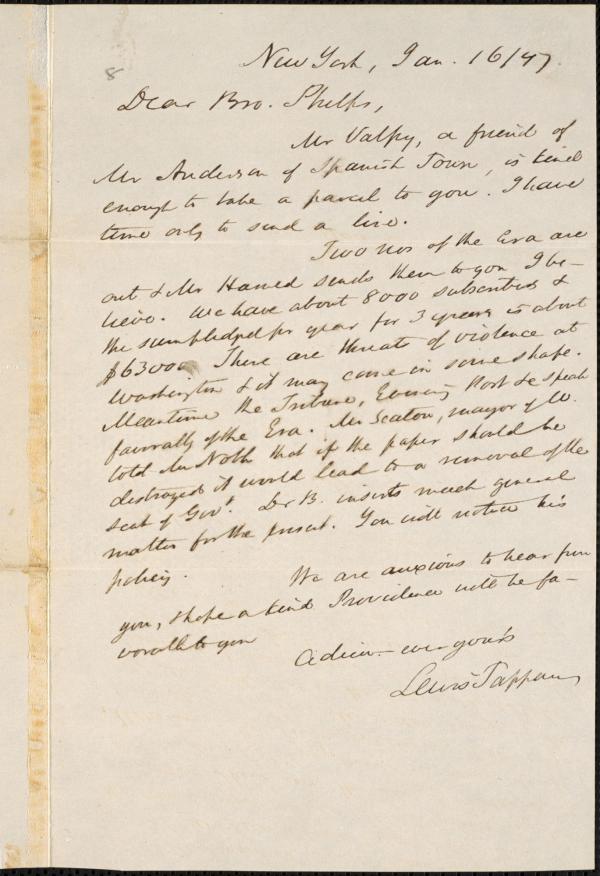 8
New York, Jan. 16/47.
Dear Bro. Phelps,
Mr Valpy, a friend of
Mr Anderson of Spanish Town, is kind
enough to take a parcel to you. I have
time only to send a line.
Two nos of the Era are
out & Mr Harned sends them to you I be-
lieve. We have about 8000 subscribers &
the sum pledged pr year for 3 years is about
$63000 There are threats of violence at
Washington & it may come in some shape.
Meantime the Tribune, Evening Post &c speak
favorably of the Era. Mr Seaton, mayor of W.
told Mr Noble that if the paper should be
destroyed it would lead to a removal of the
seat of Govt. Dr B. inserts much general
matter for the present. You will notice his
policy.
We are anxious to hear from
you, & hope a kind Providence will be fa-
vorable to you
Adieu - ever yours
Lewis Tappan